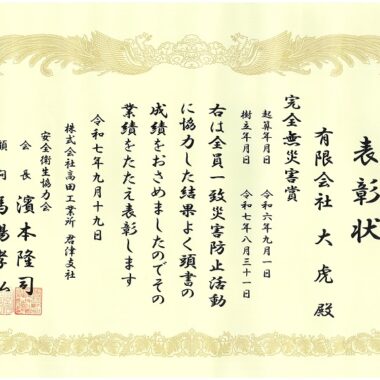 表彰状
有限会社 大虎 殿
完全無災害賞
起算年月日 令和六年九月一日
樹立年月日 令和七年八月三十一日
右は全員一致災害防止活動
に協力した結果よく頭書の
成績をおさめましたのでその
業績をたたえ表彰します
令和七年九月十九日
株式会社高田工業所 君津支社
安全衛生協力会
会長 濱本隆司